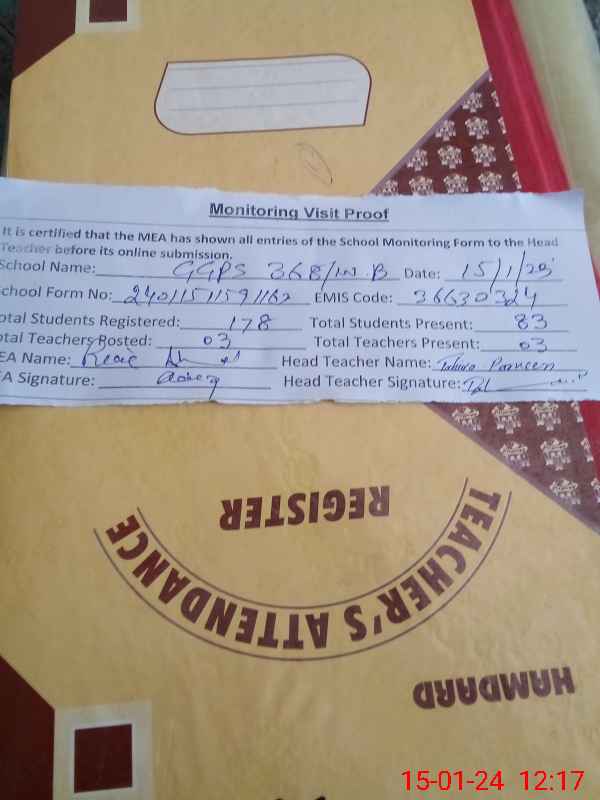 Monitoring Visit Proof
It is certified that the MEA has shown all entries of the School Monitoring Form to the Head
Teacher before its online submission.
School Name: GGPS 368/W.B Date: 15/1/25
School Form No: 24011511591162 EMIS Code: 36630324
Total Students Registered: 178 Total Students Present: 83
Total Teachers Posted: 03 Total Teachers Present: 03
MEA Name: Head Teacher Name: Tahira Parveen
MEA Signature: Head Teacher Signature:
TEACHER'S ATTENDANCE
REGISTER
HAMDARD
15-01-24 12:17